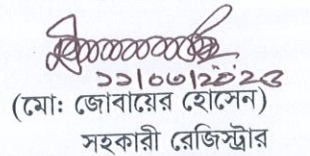 ১১/০৬/২০২৩
(মো: জোবায়ের হোসেন)
সহকারী রেজিস্ট্রার